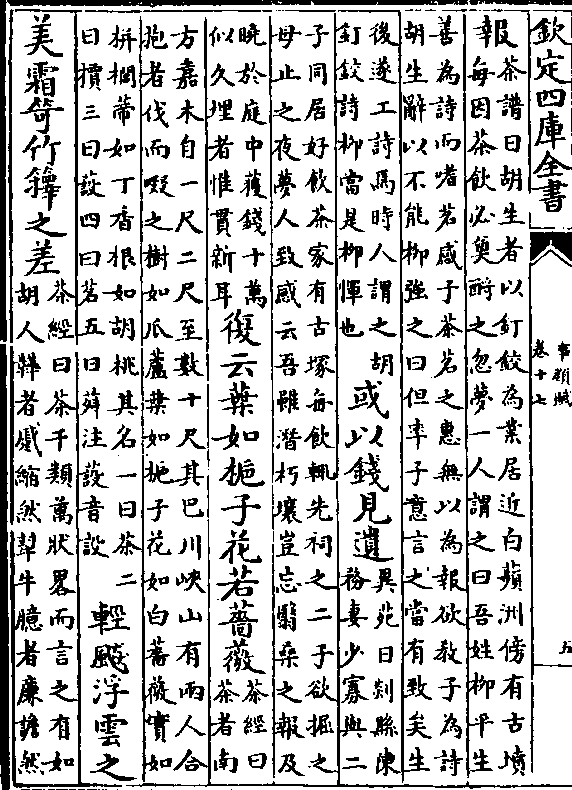 欽定四庫全書
事類賦
卷十七
五
報
茶譜曰胡生者以釘鉸為業居近白蘋洲傍有古墳
每因茶飲必奠酹之忽夢一人謂之曰吾姓柳平生
善為詩而嗜茗感子茶茗之惠無以為報欲教子為詩
胡生辭以不能柳強之曰但率子意言之當有致矣生
後遂工詩焉時人謂之胡
釘鉸詩柳當是柳惲也
或以錢見遺
異苑曰剡縣陳
務妻少寡與二
子同居好飲茶家有古塚每飲輒先祠之二子欲掘之
母止之夜夢人致感云吾雖潛朽壤豈忘翳桑之報及
曉於庭中獲錢十萬
似久埋者惟貫新耳
復云葉如梔子花若薔薇
茶經曰
茶者南
方嘉木自一尺二尺至數十尺其巴川峽山有兩人合
抱者伐而啜之樹如瓜蘆葉如梔子花如白薔薇實如
栟櫚蒂如丁香根如胡桃其名一曰茶二
曰檟三曰蔎四曰茗五曰荈注蔎音設
輕飈浮雲之
美霜笴竹籜之差
茶經曰茶千類萬狀畧而言之有如
胡人鞾者蹙縮然犎牛臆者廉襜然